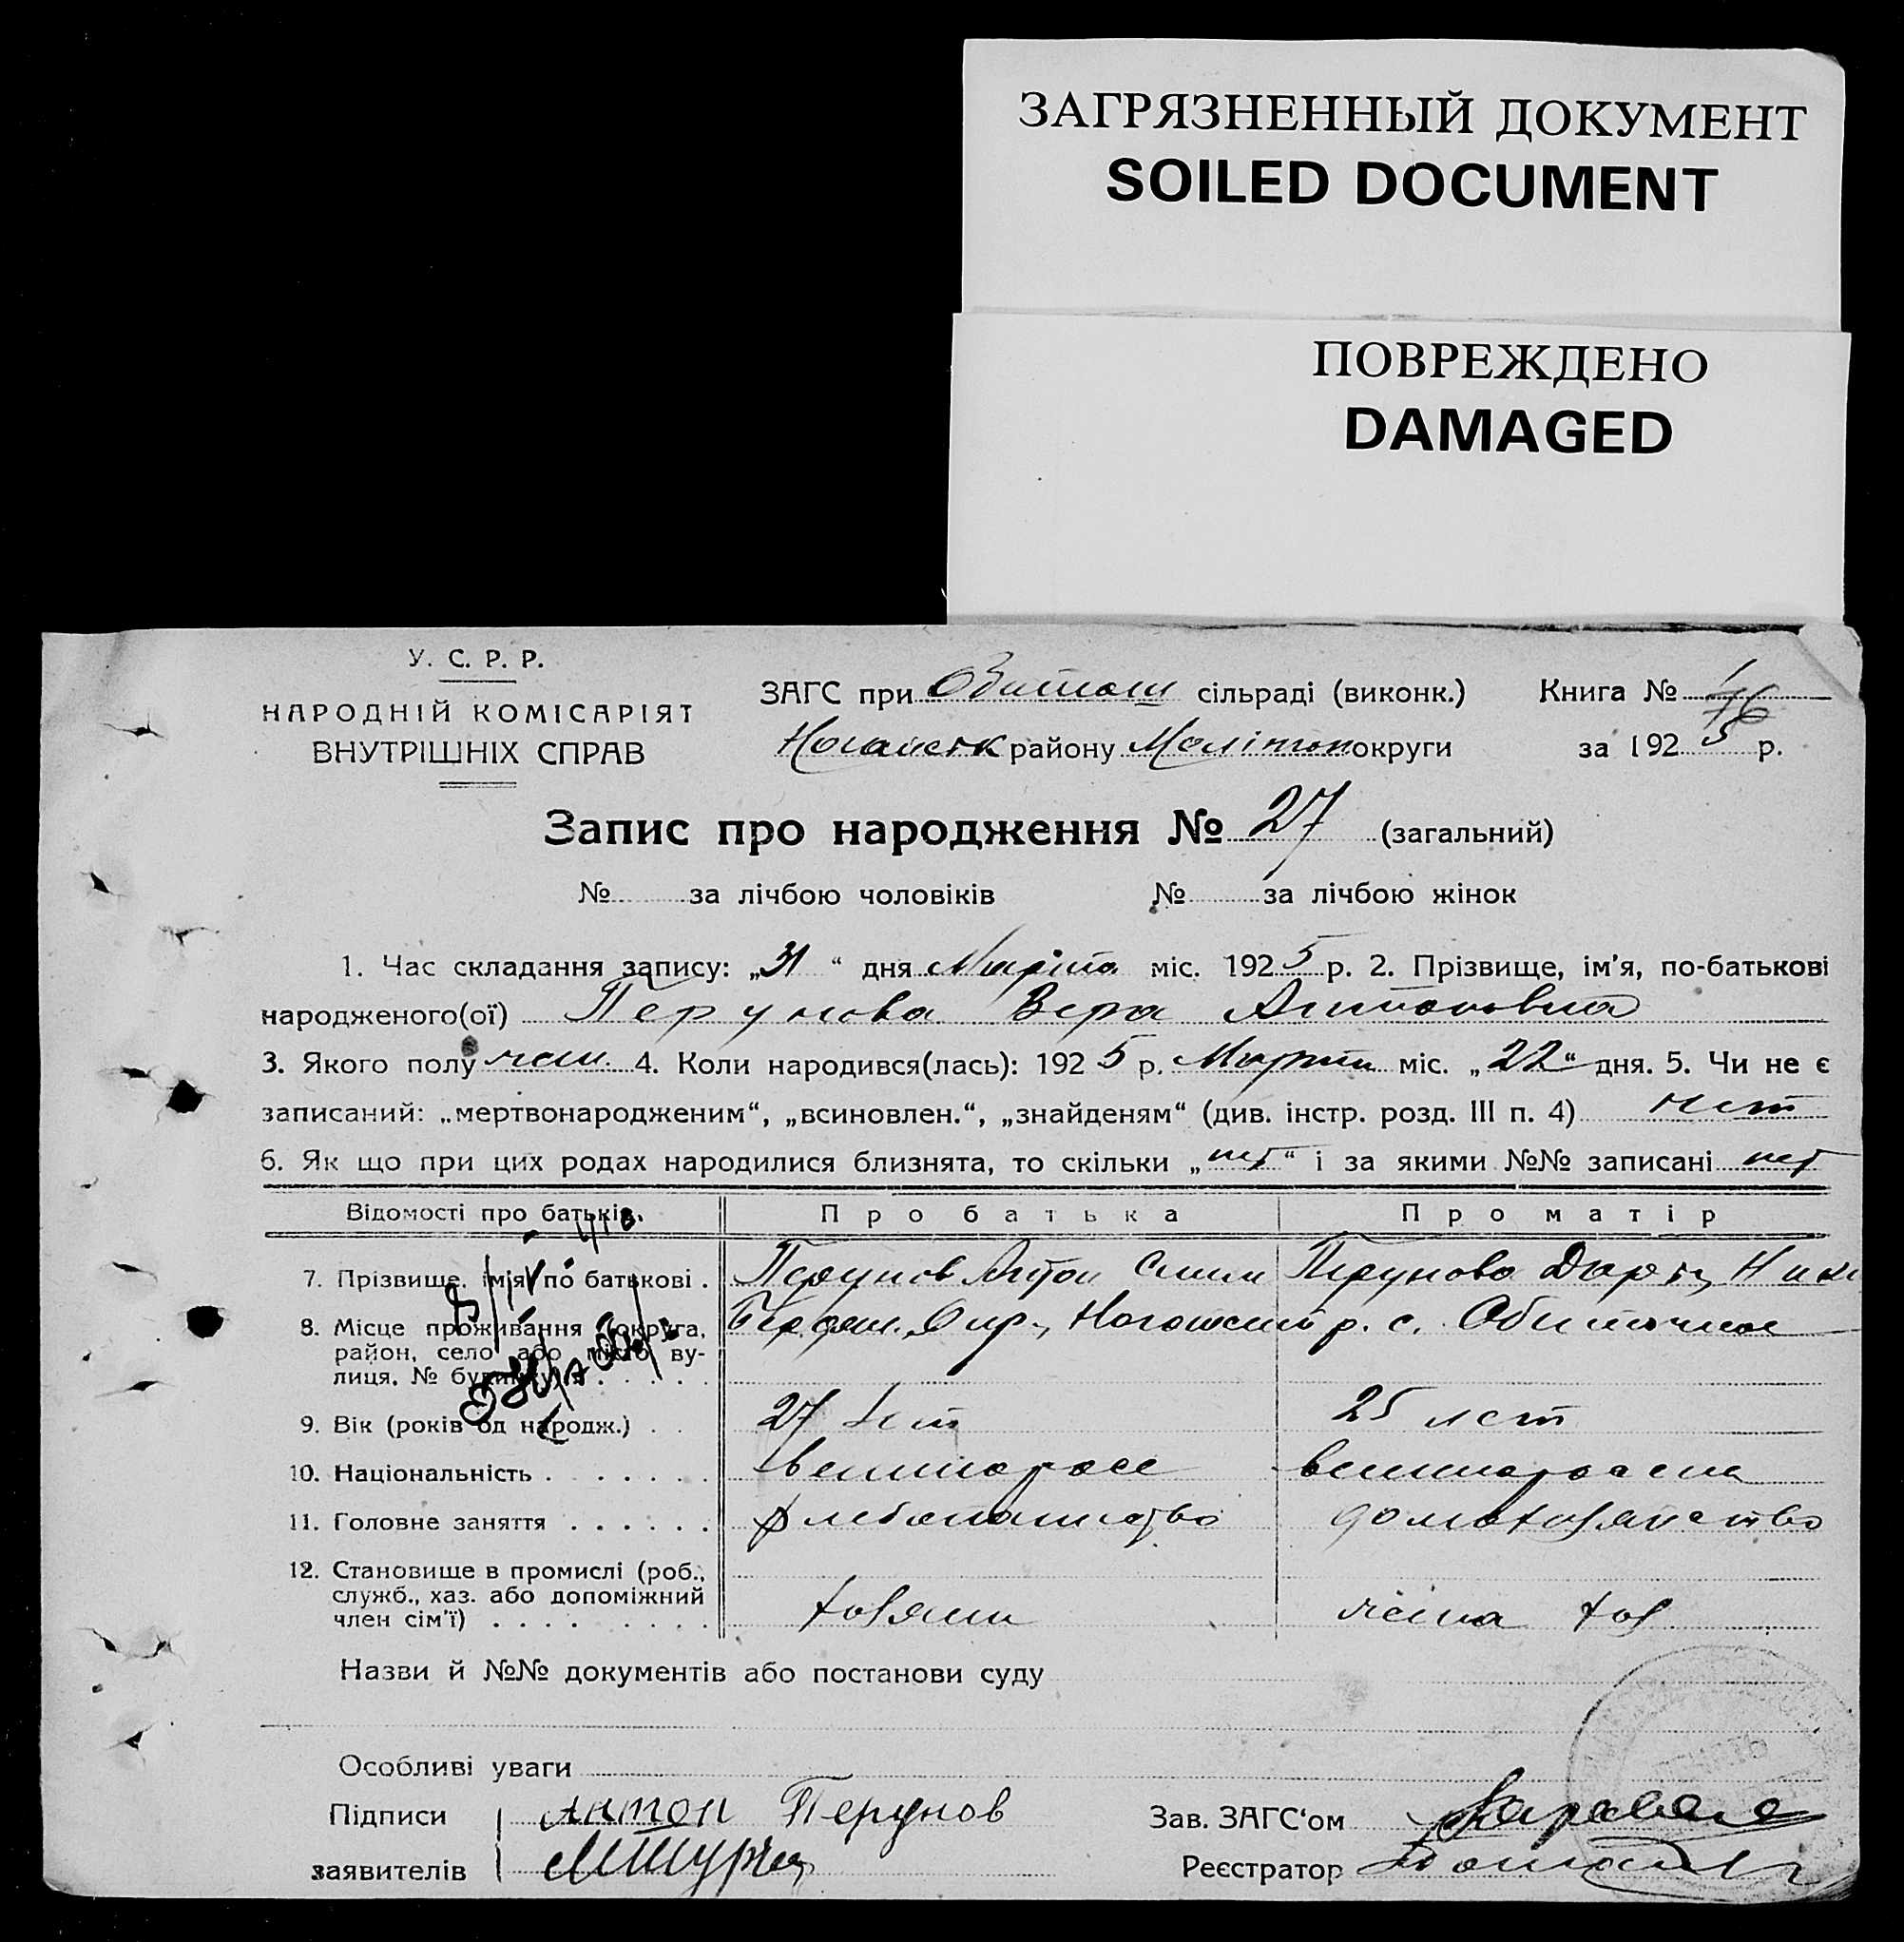 ЗАГРЯЗНЕННЫЙ ДОКУМЕНТ
SOILED DOCUMENT
ПОВРЕЖДЕНО
DAMAGED
У. С. Р. Р.
НАРОДНІЙ КОМІСАРІЯТ
ВНУТРІШНІХ СПРАВ
ЗАГС при сільраді (виконк.) Книга №
району округи за 1925 р.
Запис про народження № 27 (загальний)
№ за лічбою чоловіків № за лічбою жінок
1. Час складання запису: „31“ дня Марта міс. 1925 р. 2. Прізвище, ім’я, по-батькові
народженого(ої) Перунова Вера Антоновна
3. Якого полу жен. 4. Коли народився(лась): 1925 р. Марта міс. „22“ дня. 5. Чи не є
записаний: „мертвонародженим“, „всиновлен.“, „знайденям“ (див. інстр. розд. III п. 4) нет
6. Як що при цих родах народилися близнята, то скільки „нет“ і за якими №№ записані нет
Відомості про батьків. Про батька Про матір
7. Прізвище, ім’я, по батькові . Перунов Антон Перунова
8. Місце проживання (округа, р. с. Обиточное
район, село або місто ву-
лиця, № будинку)
9. Вік (років од народж.) . . 27 лет 25 лет
10. Національність . . . . . . . великоросс
11. Головне заняття . . . . . . хлебопашество домохозяйство
12. Становище в промислі (роб.,
служб., хаз. або допоміжний
член сім’ї) . . . . . . . . хозяин жена хоз
Назви й №№ документів або постанови суду
Особливі уваги
Підписи Антон Перунов Зав. ЗАГС‘ом
заявителів Реєстратор